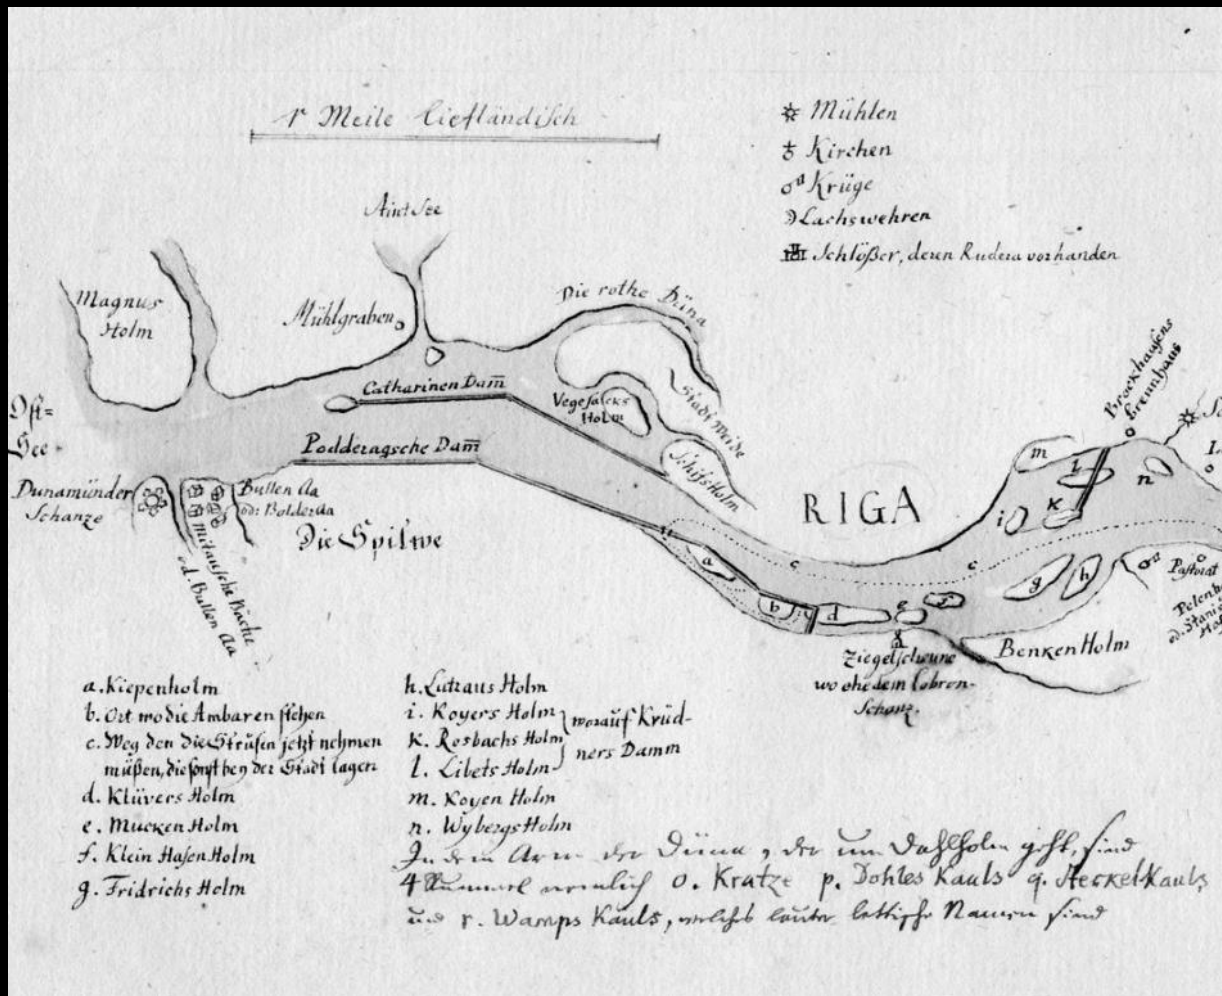 1 Meile liefländisch
Mühlen
Kirchen
Krüge
Lachswehren
Schlößer, deren Rudera vorhanden
Aint See
Magnus
Holm
Mühlgraben
Die rothe Düna
Catharinen Dam̅
Vegesacks
Holm
Stadt Weide
Schifs Holm
Brockhausens
brennhaus
Ost=
See
Podderagsche Dam̅
Dunamünder
Schanze
Bullen Aa
od: Bolder Aa
Mitausche Bäche
od. Bullen Aa
Die Spilwe
RIGA
m
l
k
i
n
c
c
a
b
d
e
f
g
h
Pastorat
Benken Holm
Ziegelscheune
wo ehedem Cobron-
Schanz.
a. Kiepenholm
b. Ort wo die Ambaren stehen
c. Weg den die Strusen jetzt nehmen
müßen, die sonst bey der Stadt lagen
d. Klüvers Holm
e. Mucken Holm
f. Klein Hasen Holm
g. Fridrichs Holm
h. Lutzaus Holm
i. Koyers Holm
k. Rosbachs Holm
l. Libets Holm
worauf Krüd-
ners Damm
m. Koyen Holm
n. Wybergs Holm
In dem Arm der Düna, der um Dahlholm geht, sind
4 nemlich o. Kratze p. Dohles Kauls q. Kauls
und r. Wamps Kauls, welches lauter lettische Namen sind